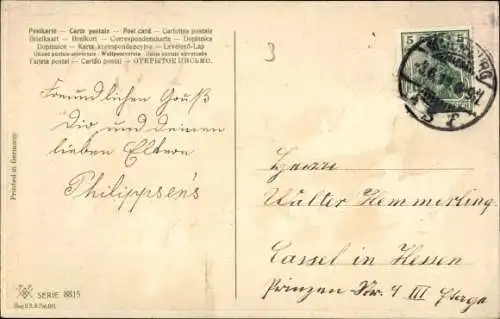 Postkarte — Carte postale — Post card — Cartolina postale
Briefkaart — Brefkort — Correspondenzkarte — Dopisnica
Dopisnice — Karta korespondencyjna — Levelező-Lap
Tarjeta postal — Cartão postal — ОТКРЫТОЕ ПИСЬМО.
3
5 5
Freundlichen Gruß
Dir und Deinen
lieben Eltern
Philippsen's
Herrn
Walter Hemmerling
Cassel in Hessen
Prinzen Str. 4 III Etage
Printed in Germany
SERIE 8815